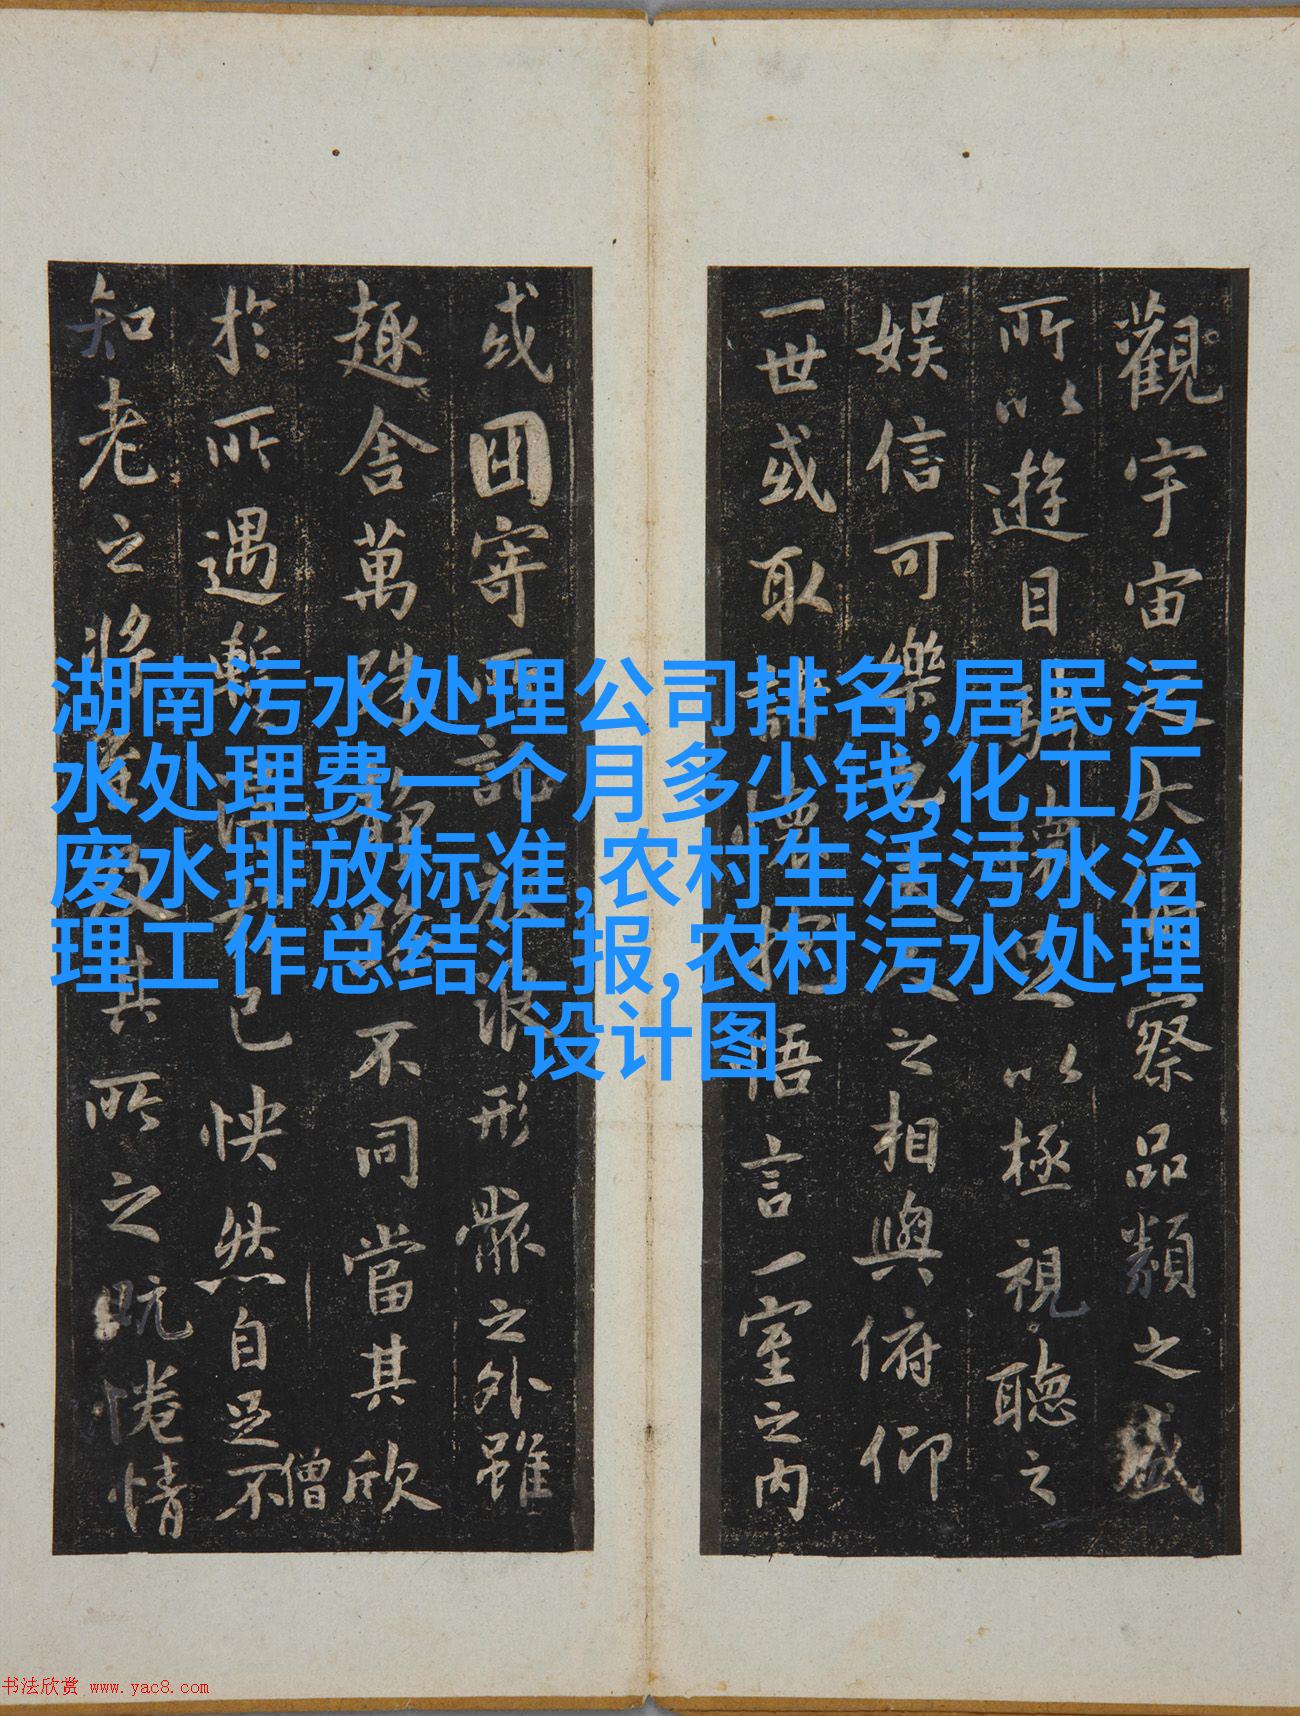 觀宇宙之大俯察品類之盛
所以遊目騁懷足以極視聽之
娛信可樂也夫人之相與俯仰
一世或取諸懷抱悟言一室之內
或因寄所託放浪形骸之外雖
趣舍萬殊靜躁不同當其欣
僧
於所遇暫得於己快然自足不
知老之將至及其所之既惓情
湖南污水处理公司排名,居民污
水处理费一个月多少钱,化工厂
废水排放标准,农村生活污水治
理工作总结汇报,农村污水处理
设计图
书法欣赏 www.yac8.com